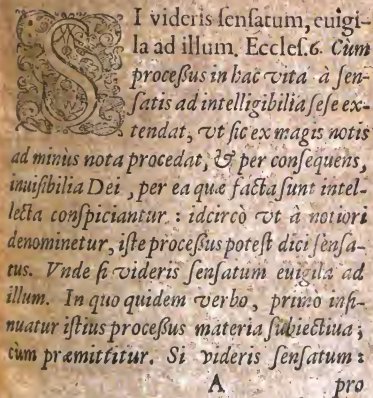 SI videris ſenſatum, euigi-
la ad illum. Eccleſ.6. Cùm
proceßus in hac vita à ſen-
ſatis ad intelligibilia ſeſe ex-
tendat, vt ſic ex magis notis
ad minùs nota procedat, & per conſequens,
inuiſibilia Dei, per ea quæ facta ſunt intel-
lecta conſpiciantur : idcircò vt à notiori
denominetur, iſte proceßus poteſt dici ſenſa-
tus. Vnde ſi videris ſenſatum euigila ad
illum. In quo quidem verbo, primo inſi-
nuatur iſtius proceßus materia ſubiectiua;
cùm præmittitur. Si videris ſenſatum:
A pro